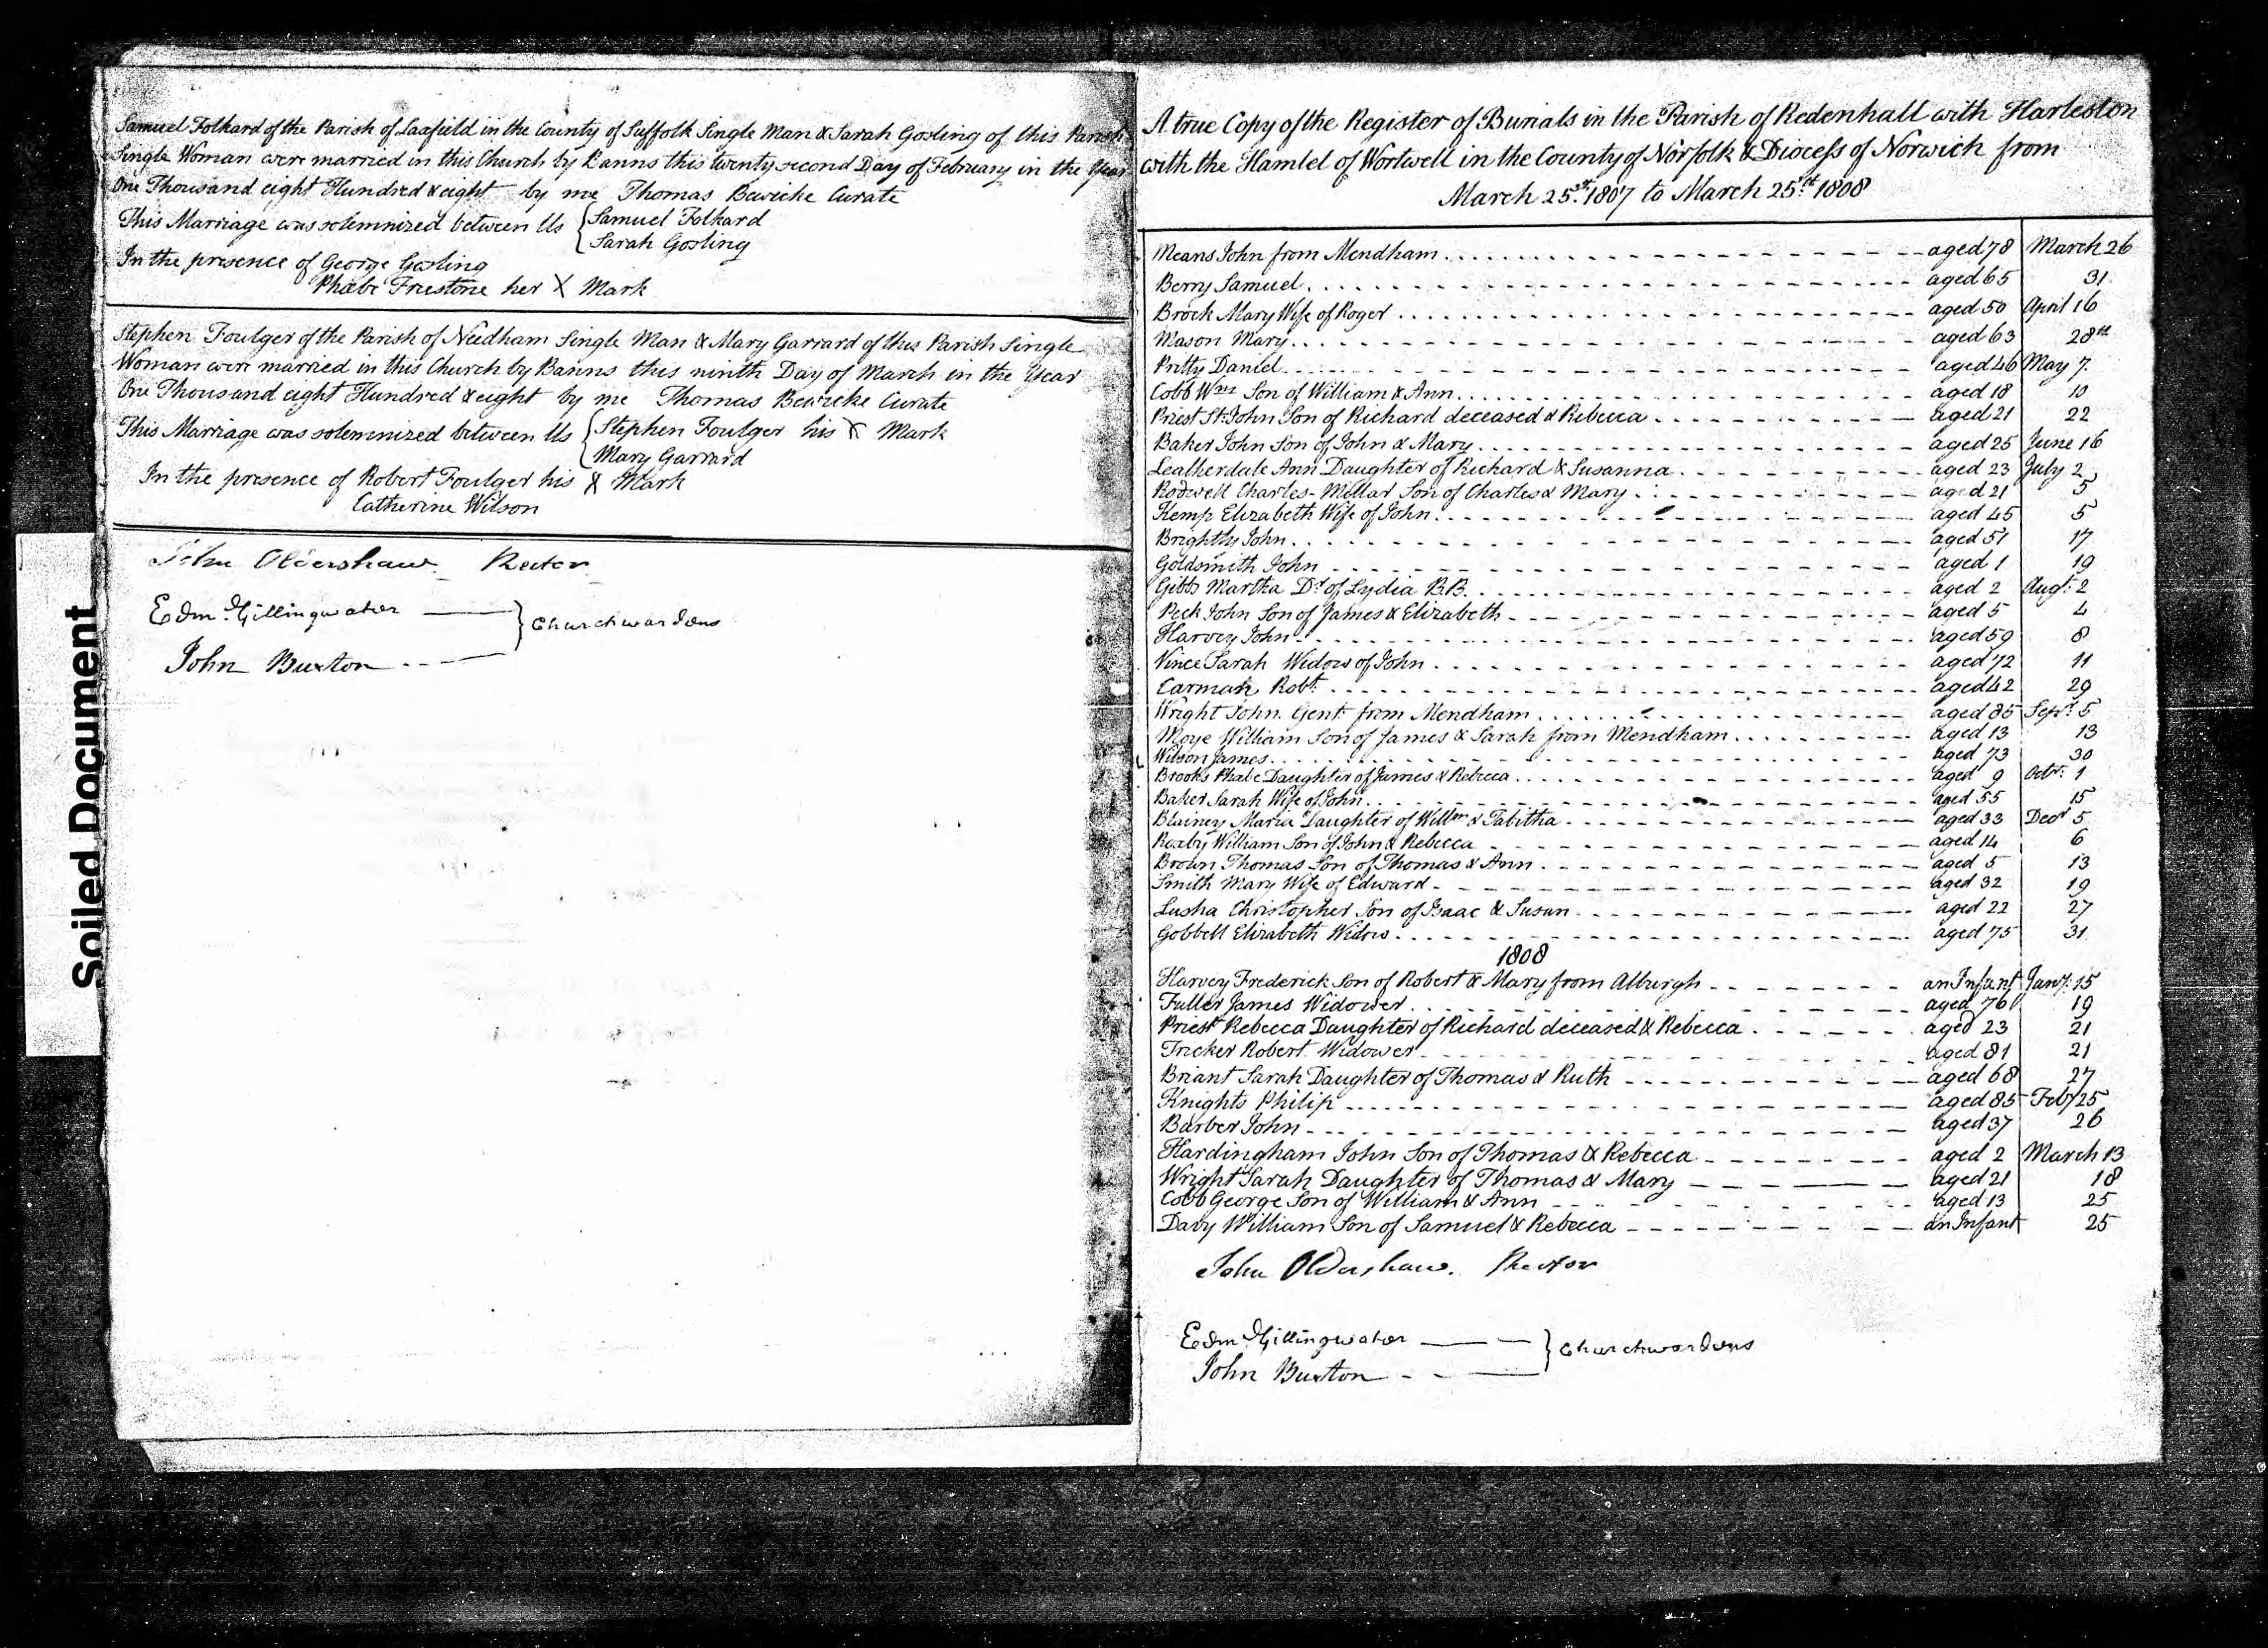 Soiled Document
Samuel Folkard of the Parish of Laxfield in the County of Suffolk Single Man & Sarah Gosling of this Parish
Single Woman were married in this Church by Banns this twenty second Day of February in the Year
One Thousand eight Hundred & eight by me Thomas Bewicke Curate
This Marriage was solemnized between Us { Samuel Folkard
Sarah Gosling
In the presence of George Gosling
Phœbe Freestone her X Mark
Stephen Foulger of the Parish of Needham Single Man & Mary Garrard of this Parish Single
Woman were married in this Church by Banns this ninth Day of March in the Year
One Thousand eight Hundred & eight by me Thomas Bewicke Curate
This Marriage was solemnized between Us { Stephen Foulger his X Mark
Mary Garrard
In the presence of Robert Foulger his X Mark
Catherine Wilson
John Oldershaw Rector
Edmd. Gillingwater } Churchwardens
John Buxton
A true Copy of the Register of Burials in the Parish of Redenhall with Harleston
with the Hamlet of Wortwell in the County of Norfolk & Diocess of Norwich from
March 25st. 1807 to March 25st. 1808
Means John from Mendham aged 78 March 26
Berry Samuel aged 65 31
Brock Mary Wife of Roger aged 50 April 16
Mason Mary aged 63 28th
Pretty Daniel aged 46 May 7
Cobb Wm Son of William & Ann aged 18 10
Priest St. John Son of Richard deceased & Rebecca aged 21 22
Baker John Son of John & Mary aged 25 June 16
Leatherdale Ann Daughter of Richard & Susanna aged 23 July 2
Rodwell Charles-Millar Son of Charles & Mary aged 21 5
Kemp Elizabeth Wife of John aged 45 5
Brightly John aged 51 17
Goldsmith John aged 1 19
Gibbs Martha Dr. of Lydia B.B. aged 2 Augt. 2
Peck John Son of James & Elizabeth aged 5 4
Harvey John aged 59 8
Vince Sarah Widow of John aged 72 11
Carman Robt. aged 42 29
Wright John Gent. from Mendham aged 85 Sepr. 5
Moye William Son of James & Sarah from Mendham aged 13 13
Wilson James aged 73 30
Brooks Phœbe Daughter of James & Rebecca aged 9 Octr. 1
Baker Sarah Wife of John aged 55 15
Blainey Maria Daughter of Willm & Tabitha aged 33 Decr 5
Roxby William Son of John & Rebecca aged 14 6
Brown Thomas Son of Thomas & Ann aged 5 13
Smith Mary Wife of Edward aged 32 19
Lusha Christopher Son of Isaac & Susan aged 22 27
Gobbell Elizabeth Widow aged 75 31
1808
Harvey Frederick Son of Robert & Mary from Alburgh an Infant Jany. 15
Fuller James Widower aged 76 19
Priest Rebecca Daughter of Richard deceased & Rebecca aged 23 21
Tricker Robert Widower aged 81 21
Briant Sarah Daughter of Thomas & Ruth aged 68 27
Knights Philip aged 85 Feby 25
Barber John aged 37 26
Hardingham John Son of Thomas & Rebecca aged 2 March 13
Wright Sarah Daughter of Thomas & Mary aged 21 18
Cobb George Son of William & Ann aged 13 25
Davy William Son of Samuel & Rebecca an Infant 25
John Oldershaw. Rector
Edmd. Gillingwater } Churchwardens
John Buxton